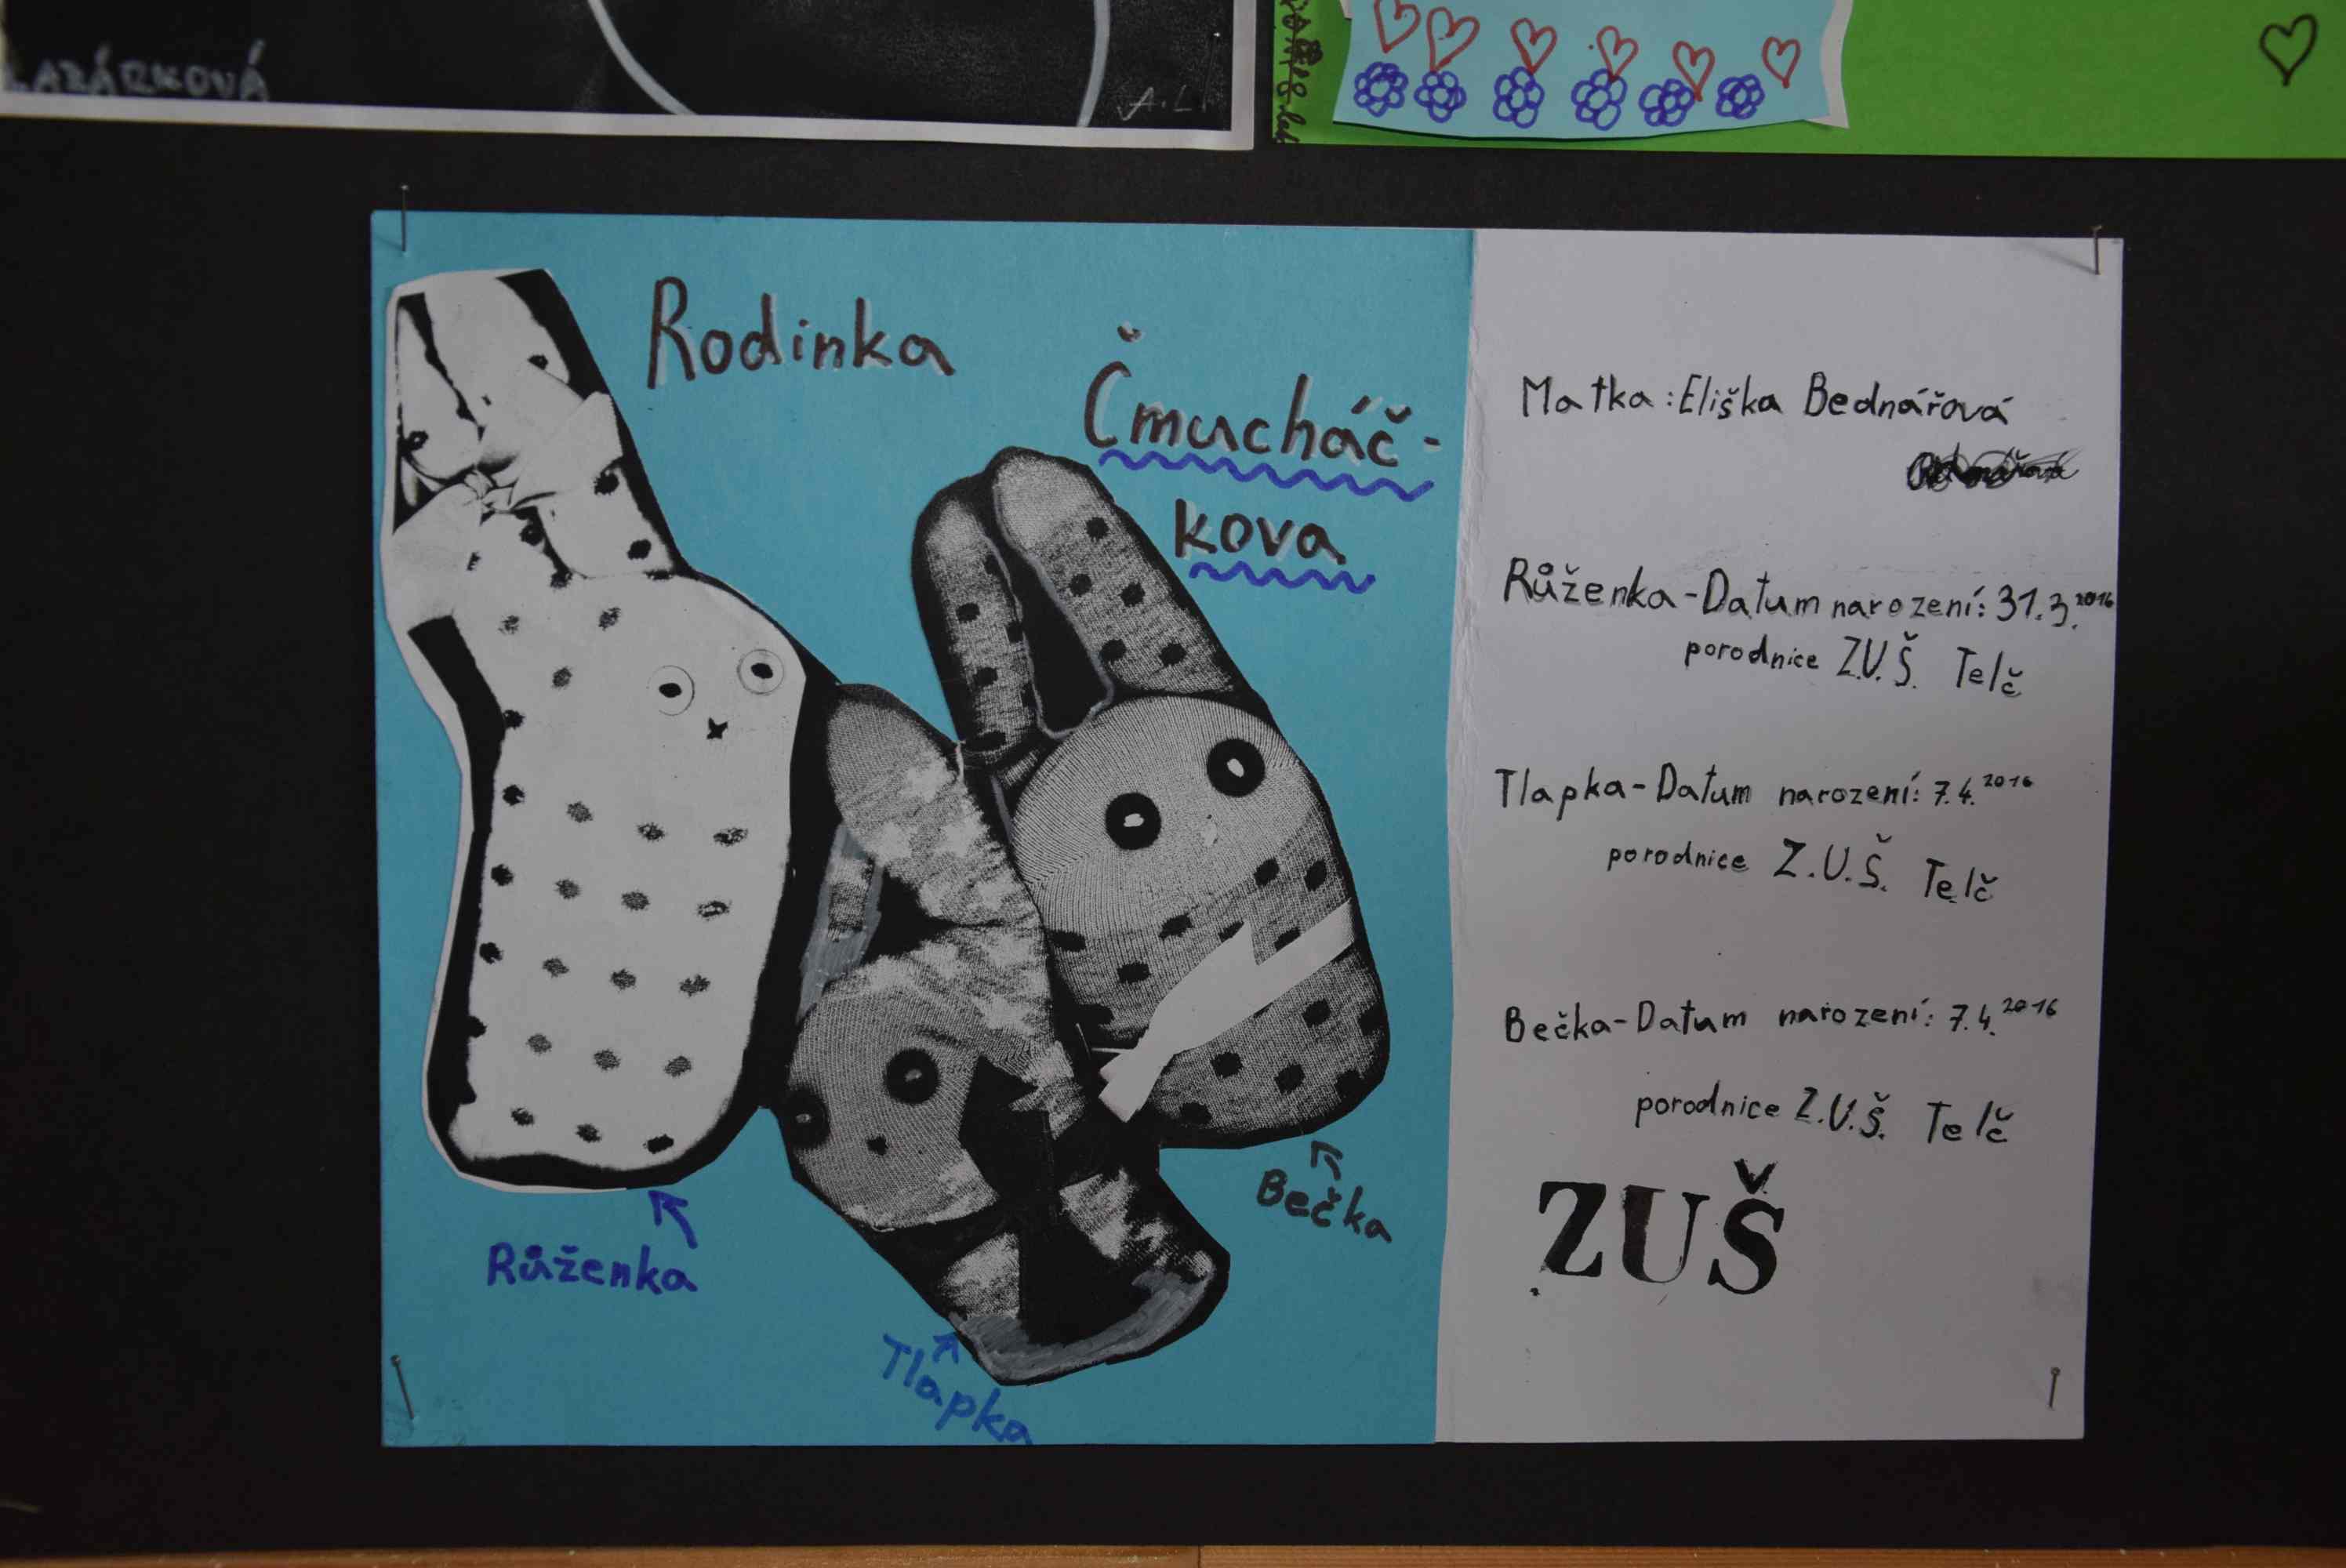 LAZÁRKOVÁ
A.L.
Rodinka
Čmucháč-
kova
Růženka
Tlapka
Bečka
Matka: Eliška Bednářová
Růženka-Datum narození: 31.3.2016
porodnice Z.U.Š. Telč
Tlapka-Datum narození: 7.4.2016
porodnice Z.U.Š. Telč
Bečka-Datum narození: 7.4.2016
porodnice Z.U.Š. Telč
ZUŠ